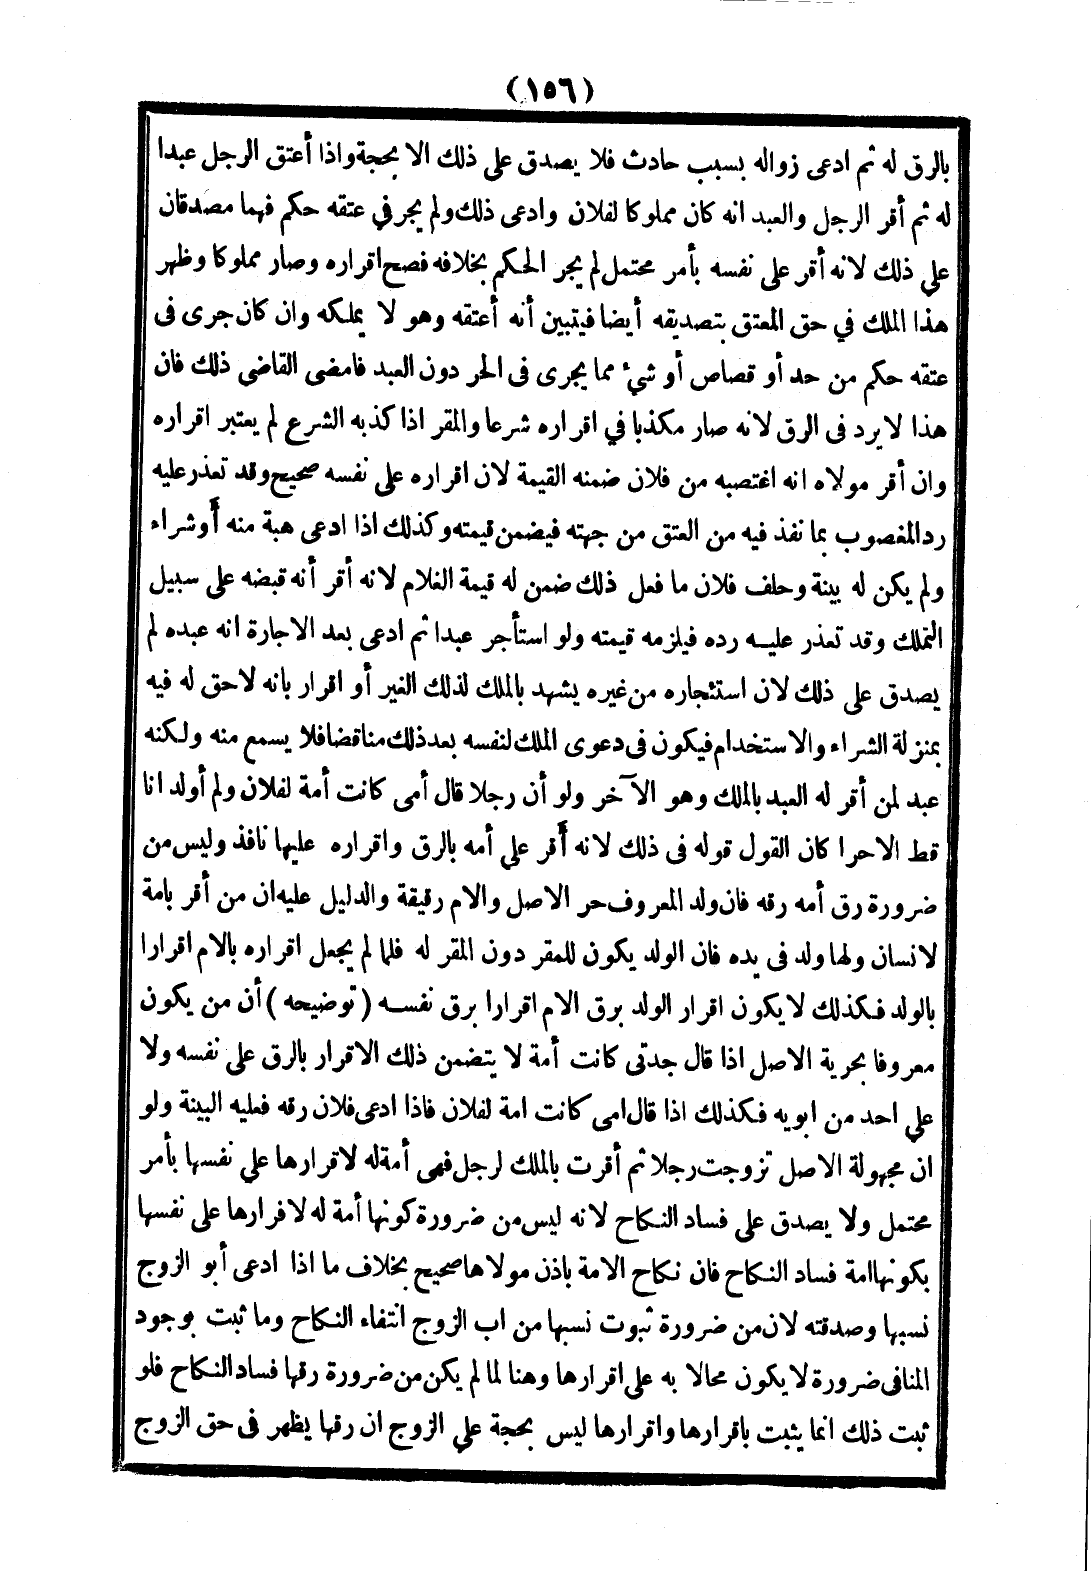 (١٥٦)
بالرق له ثم ادعى زواله بسبب حادث فلا يصدق على ذلك الا بحجة واذا أعتق الرجل عبدا
له ثم أقر الرجل والعبد انه كان مملوكا لفلان وادعى ذلك ولم يجر في عتقه حكم فهما مصدقان
على ذلك لانه أقر على نفسه بأمر محتمل لم يجر الحكم بخلافه فصح اقراره وصار مملوكا وظهر
هذا الملك في حق المعتق بتصديقه أيضا فيتبين أنه أعتقه وهو لا يملكه وان كان جرى فى
عتقه حكم من حد أو قصاص أو شيء مما يجرى فى الحر دون العبد فامضى القاضى ذلك فان
هذا لا يرد فى الرق لانه صار مكذبا في اقراره شرعا والمقر اذا كذبه الشرع لم يعتبر اقراره
وان أقر مولاه انه اغتصبه من فلان ضمنه القيمة لان اقراره على نفسه صحيح وقد تعذر عليه
رد المغصوب بما نفذ فيه من العتق من جهته فيضمن قيمته وكذلك اذا ادعى هبة منه أو شراء
ولم يكن له بينة وحلف فلان ما فعل ذلك ضمن له قيمة الغلام لانه أقر أنه قبضه على سبيل
التملك وقد تعذر عليه رده فيلزمه قيمته ولو استأجر عبدا ثم ادعى بعد الاجارة انه عبده لم
يصدق على ذلك لان استئجاره من غيره يشهد بالملك لذلك الغير أو اقرار بانه لا حق له فيه
بمنزلة الشراء والاستخدام فيكون فى دعوى الملك لنفسه بعد ذلك مناقضا فلا يسمع منه ولكنه
عبد لمن أقر له العبد بالملك وهو الآخر ولو أن رجلا قال أمى كانت أمة لفلان ولم أولد انا
قط الا حرا كان القول قوله فى ذلك لانه أقر على أمه بالرق واقراره عليها نافذ وليس من
ضرورة رق أمه رقه فان ولد المعروف حر الاصل والام رقيقة والدليل عليه ان من أقر بامة
لانسان ولها ولد فى يده فان الولد يكون للمقر دون المقر له فلما لم يجعل اقراره بالام اقرارا
بالولد فكذلك لا يكون اقرار الولد برق الام اقرارا برق نفسه (توضيحه) أن من يكون
معروفا بحرية الاصل اذا قال جدتى كانت أمة لا يتضمن ذلك الاقرار بالرق على نفسه ولا
على احد من ابويه فكذلك اذا قال امى كانت امة لفلان فاذا ادعى فلان رقه فعليه البينة ولو
ان مجهولة الاصل تزوجت رجلا ثم أقرت بالملك لرجل فهى أمة له لاقرارها على نفسها بأمر
محتمل ولا يصدق على فساد النكاح لانه ليس من ضرورة كونها أمة له لاقرارها على نفسها
بكونها امة فساد النكاح فان نكاح الامة باذن مولاها صحيح بخلاف ما اذا ادعى أبو الزوج
نسبها وصدقته لان من ضرورة ثبوت نسبها من اب الزوج انتفاء النكاح وما ثبت بوجود
المنافى ضرورة لا يكون محالا به على اقرارها وهنا لما لم يكن من ضرورة رقها فساد النكاح فلو
ثبت ذلك انما يثبت باقرارها واقرارها ليس بحجة على الزوج ان رقها يظهر فى حق الزوج